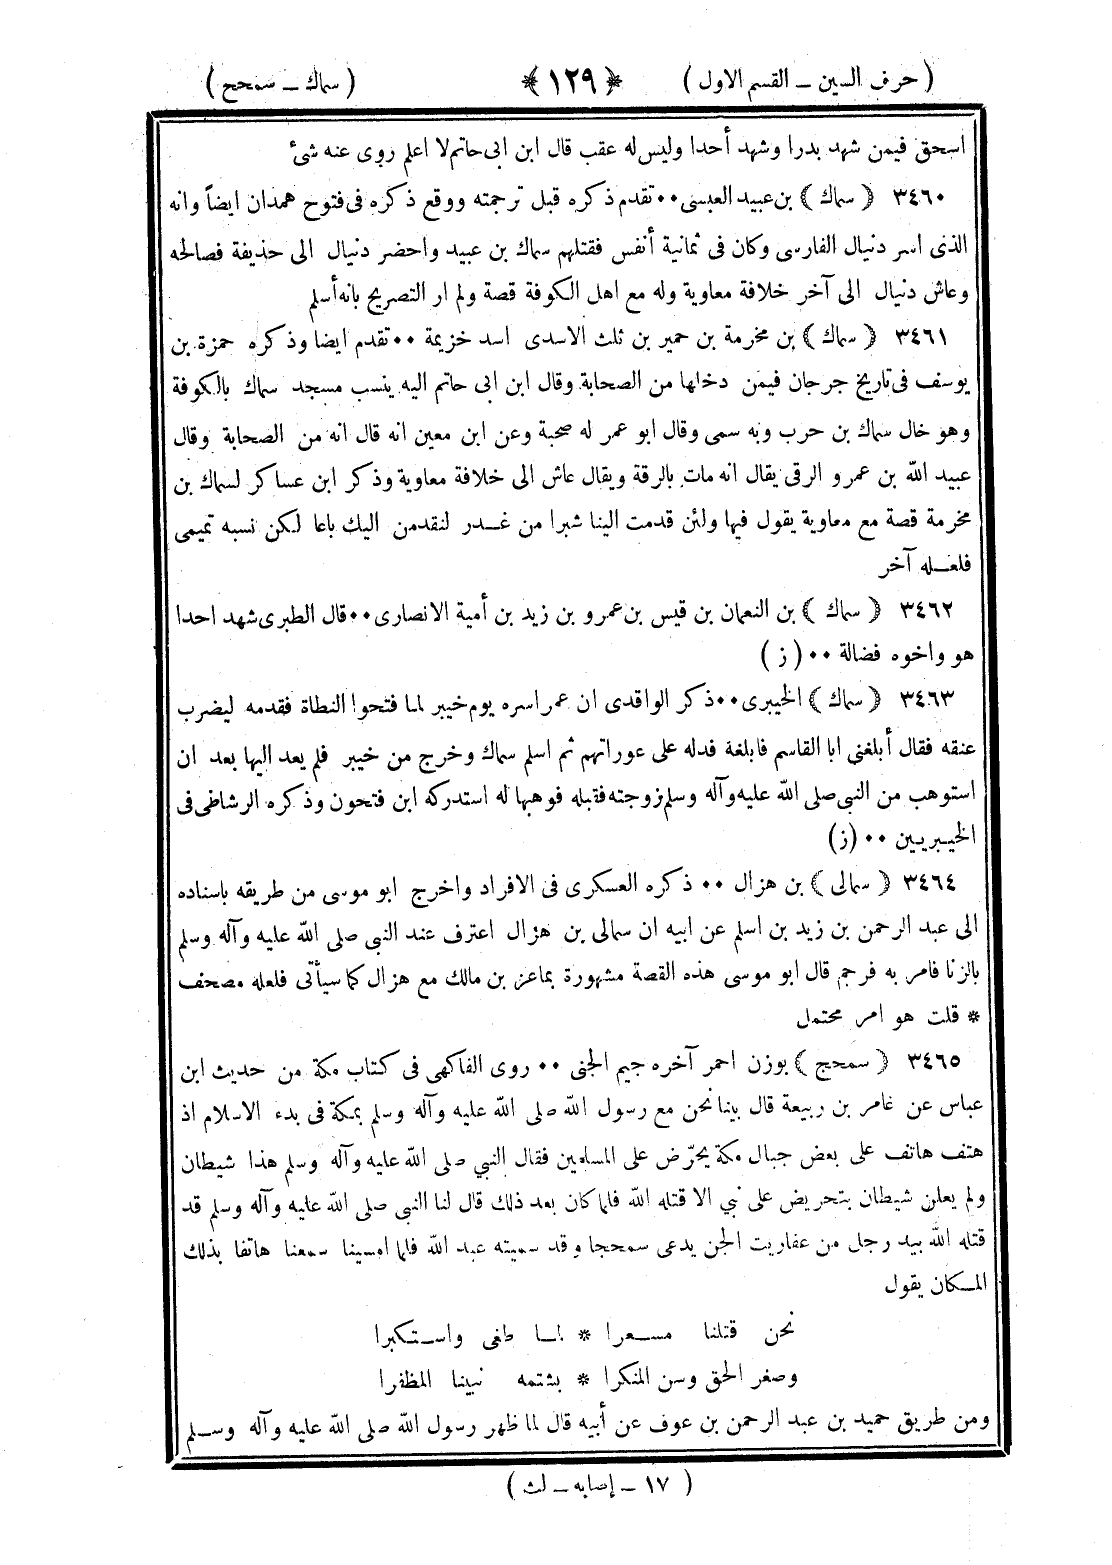 ( حرف السين ــ القسم الاول ) ﴿ ١٢٩ ﴾ ( سماك ــ سمحج )
اسحق فيمن شهد بدرا وشهد أحدا وليس له عقب قال ابن ابى حاتم لا اعلم روى عنه شئ
٣٤٦٠ ﴿ سماك ﴾ بن عبيد العبسى ٠٠ تقدم ذكره قبل ترجمته ووقع ذكره فى فتوح همدان ايضاً وانه
الذى اسر دنيال الفارسى وكان فى ثمانية أنفس فقتلهم سماك بن عبيد واحضر دنيال الى حذيفة فصالحه
وعاش دنيال الى آخر خلافة معاوية وله مع اهل الكوفة قصة ولم ار التصريح بانه أسلم
٣٤٦١ ﴿ سماك ﴾ بن مخرمة بن حمير بن ثلث الاسدى اسد خزيمة ٠٠ تقدم ايضا وذكره حمزة بن
يوسف فى تاريخ جرجان فيمن دخلها من الصحابة وقال ابن ابى حاتم اليه ينسب مسجد سماك بالكوفة
وهو خال سماك بن حرب وبه سمى وقال ابو عمر له صحبة وعن ابن معين انه قال انه من الصحابة وقال
عبيد الله بن عمرو الرقى يقال انه مات بالرقة ويقال عاش الى خلافة معاوية وذكر ابن عساكر لسماك بن
مخرمة قصة مع معاوية يقول فيها ولئن قدمت الينا شبرا من غــدر لنقدمن اليك باعا لكن نسبه تميمى
فلعــله آخر
٣٤٦٢ ﴿ سماك ﴾ بن النعمان بن قيس بن عمرو بن زيد بن أمية الانصارى ٠٠ قال الطبرى شهد احدا
هو واخوه فضالة ٠٠ ( ز )
٣٤٦٣ ﴿ سماك ﴾ الخيبرى ٠٠ ذكر الواقدى ان عمر اسره يوم خيبر لما فتحوا النطاة فقدمه ليضرب
عنقه فقال أبلغنى ابا القاسم فابلغة فدله على عوراتهم ثم اسلم سماك وخرج من خيبر فلم يعد اليها بعد ان
استوهب من النبى صلى الله عليه وآله وسلم زوجته فقبله فوهبها له استدركه ابن فتحون وذكره الرشاطى فى
الخيبريين ٠٠ (ز)
٣٤٦٤ ﴿ سمالى ﴾ بن هزال ٠٠ ذكره العسكرى فى الافراد واخرج ابو موسى من طريقه باسناده
الى عبد الرحمن بن زيد بن اسلم عن ابيه ان سمالى بن هزال اعترف عند النبى صلى الله عليه وآله وسلم
بالزنا فامر به فرجم قال ابو موسى هذه القصة مشهورة بماعز بن مالك مع هزال كما سيأتى فلعله مصحف
* قلت هو امر محتمل
٣٤٦٥ ﴿ سمحج ﴾ بوزن احمر آخره جيم الجنى ٠٠ روى الفاكهى فى كتاب مكة من حديث ابن
عباس عن عامر بن ربيعة قال بينا نحن مع رسول الله صلى الله عليه وآله وسلم بمكة فى بدء الاسلام اذ
هتف هاتف على بعض جبال مكة يحرّض على المسلمين فقال النبي صلى الله عليه وآله وسلم هذا شيطان
ولم يعلن شيطان بتحريض على نبي الا قتله الله فلما كان بعد ذلك قال لنا النبى صلى الله عليه وآله وسلم قد
قتله الله بيد رجل من عفاريت الجن يدعى سمحجا وقد سميته عبد الله فلما امسينا سمعنا هاتفا بذلك
المكان يقول
نحن قتلنا مسعرا * لما طغى واستكبرا
وصغر الحق وسن المنكرا * بشتمه نبينا المظفرا
ومن طريق حميد بن عبد الرحمن بن عوف عن أبيه قال لما ظهر رسول الله صلى الله عليه وآله وسـلم
( ١٧ ــ إصابه ــ لث )